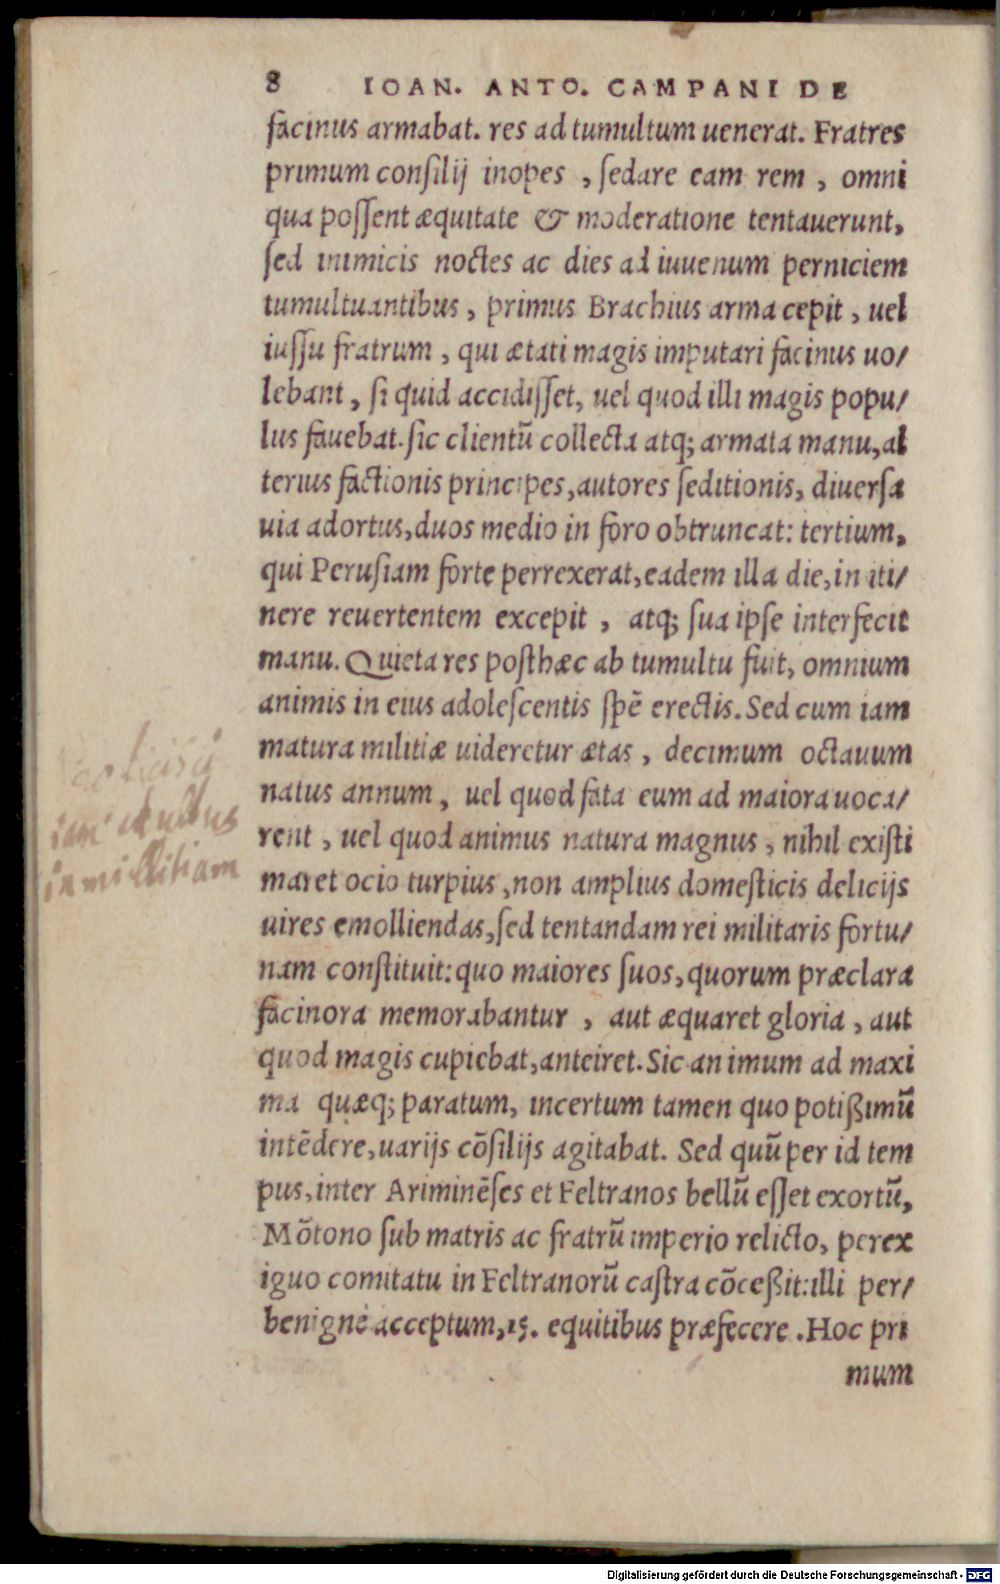 8 IOAN. ANTO. CAMPANI DE
facinus armabat. res ad tumultum uenerat. Fratres
primum consilij inopes , sedare eam rem , omni
qua possent æquitate & moderatione tentauerunt,
sed inimicis noctes ac dies ad iuuenum perniciem
tumultuantibus , primus Brachius arma cepit , uel
iussu fratrum , qui ætati magis imputari facinus uo/
lebant , si quid accidisset, uel quod illi magis popu/
lus fauebat. sic clientū collecta atq; armata manu, al
terius factionis principes, autores seditionis, diuersa
uia adortus, duos medio in foro obtruncat: tertium,
qui Perusiam forte perrexerat, eadem illa die, in iti/
nere reuertentem excepit , atq; sua ipse interfecit
manu. Quieta res posthæc ab tumultu fuit, omnium
animis in eius adolescentis spē erectis. Sed cum iam
matura militiæ uideretur ætas , decimum octauum
natus annum , uel quod fata eum ad maiora uoca/
rent , uel quod animus natura magnus , nihil existi
maret ocio turpius , non amplius domesticis delicijs
uires emolliendas, sed tentandam rei militaris fortu/
nam constituit: quo maiores suos, quorum præclara
facinora memorabantur , aut æquaret gloria , aut
quod magis cupiebat, anteiret. Sic animum ad maxi
ma quæq; paratum, incertum tamen quo potißimū
intēdere, uarijs cōsilijs agitabat. Sed quū per id tem
pus, inter Ariminēses et Feltranos bellū esset exortū,
Mōtono sub matris ac fratrū imperio relicto, perex
iguo comitatu in Feltranorū castra cōceßit: illi per/
benigne acceptum, 15. equitibus præfecere . Hoc pri
mum
in militiam
Digitalisierung gefördert durch die Deutsche Forschungsgemeinschaft - DFG